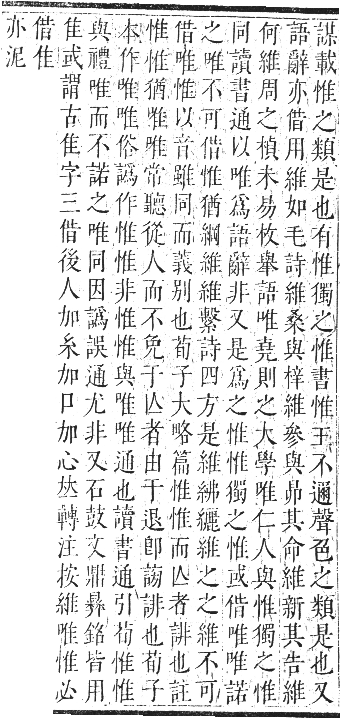 謀載惟之類是也有惟獨之惟書惟王不邇聲色之類是也又
語辭亦借用維如毛詩維桑與梓維參與昴其命維新其告維
何維周之楨未易攸舉語唯堯則之大學唯仁人與惟獨之惟
同讀書通以唯爲語辭非又是爲之惟惟獨之惟或借唯唯諾
之唯不可借惟猶綱維維繫詩四方是維紼纚維之之維不可
借唯惟以音雖同而義别也荀子大略篇惟惟而亾者誹也註
惟惟猶唯唯常聽從人而不免于亾者由于退卽謗誹也荀子
本作唯唯俗譌作惟惟非惟惟與唯唯通也讀書通引荀惟惟
與禮唯而不諾之唯同因譌誤通尤非又石鼓文鼎彝銘皆用
隹或謂古隹字三借後人加糸加口加心夶轉注按維唯惟必
借隹
亦泥